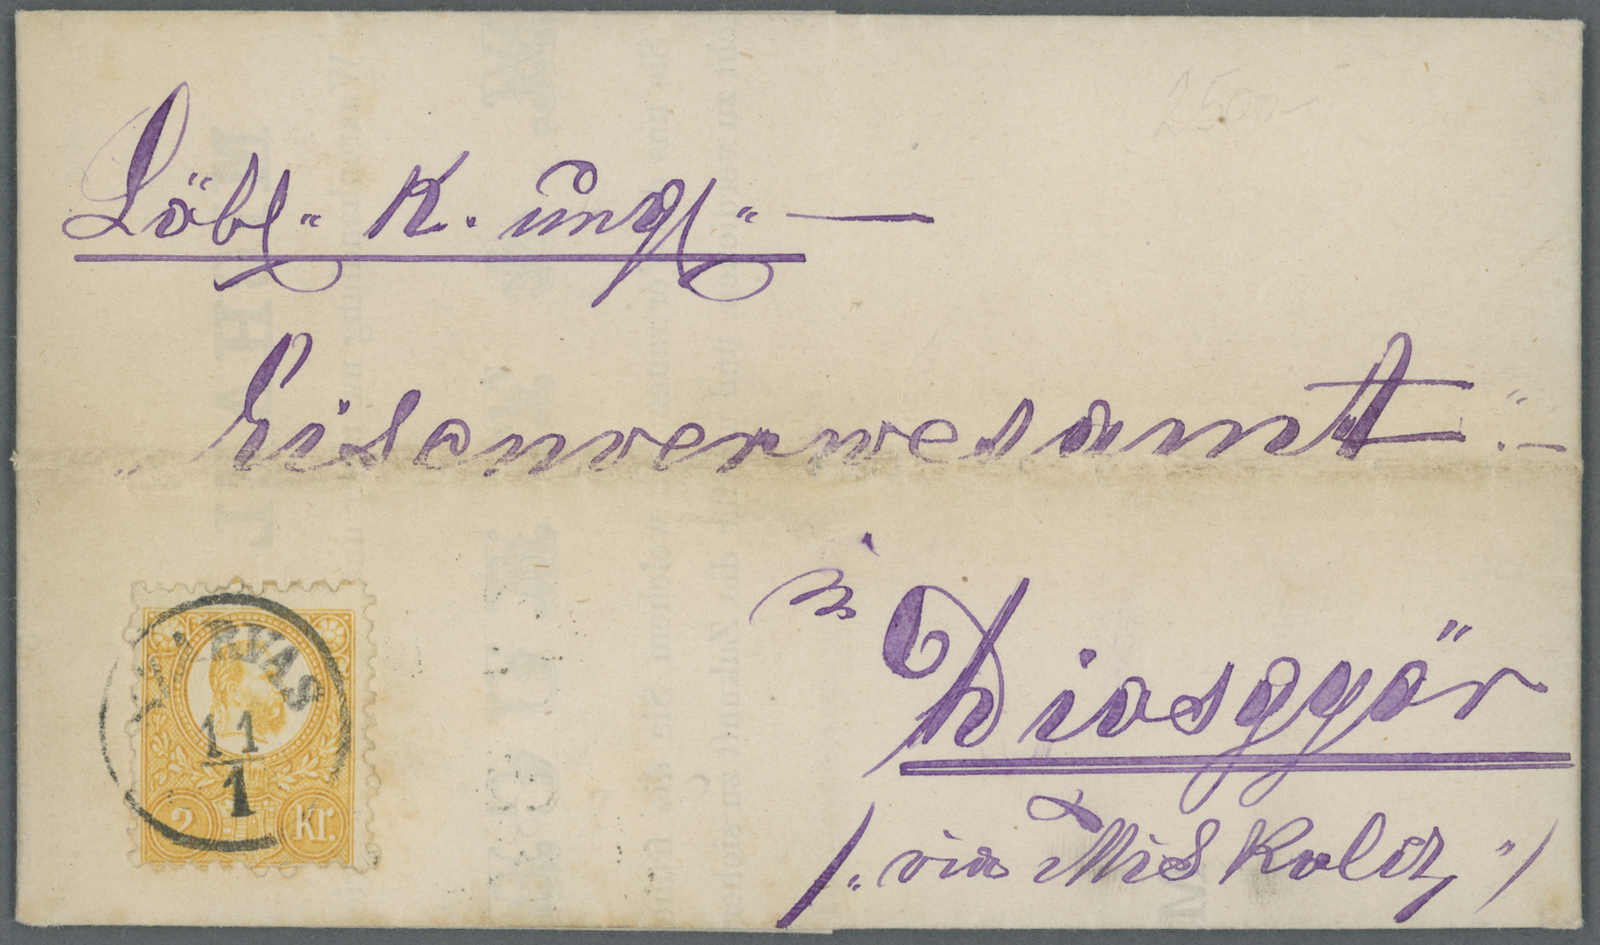 2500-
Löbl. K. ungl. —
Eisenverwesamt
in Diosgyör
/: via Miskolcz :/
SZARVAS
11
1
2 Kr.